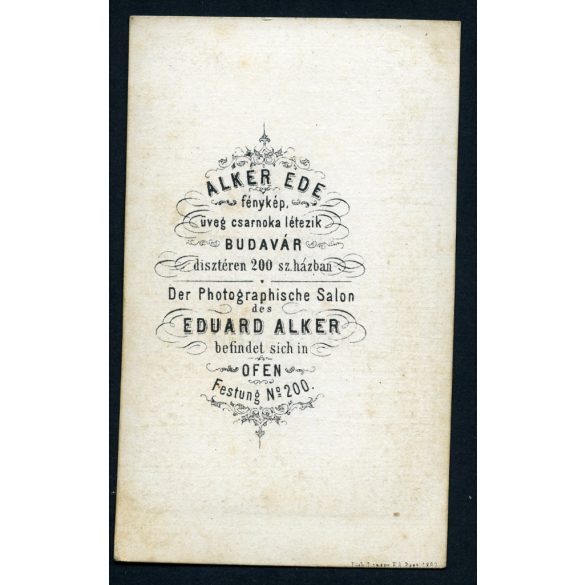 ALKER EDE
fénykép,
üveg csarnoka létezik
BUDAVÁR
disztéren 200 sz. házban
Der Photographische Salon
des
EDUARD ALKER
befindet sich in
OFEN
Festung No 200.